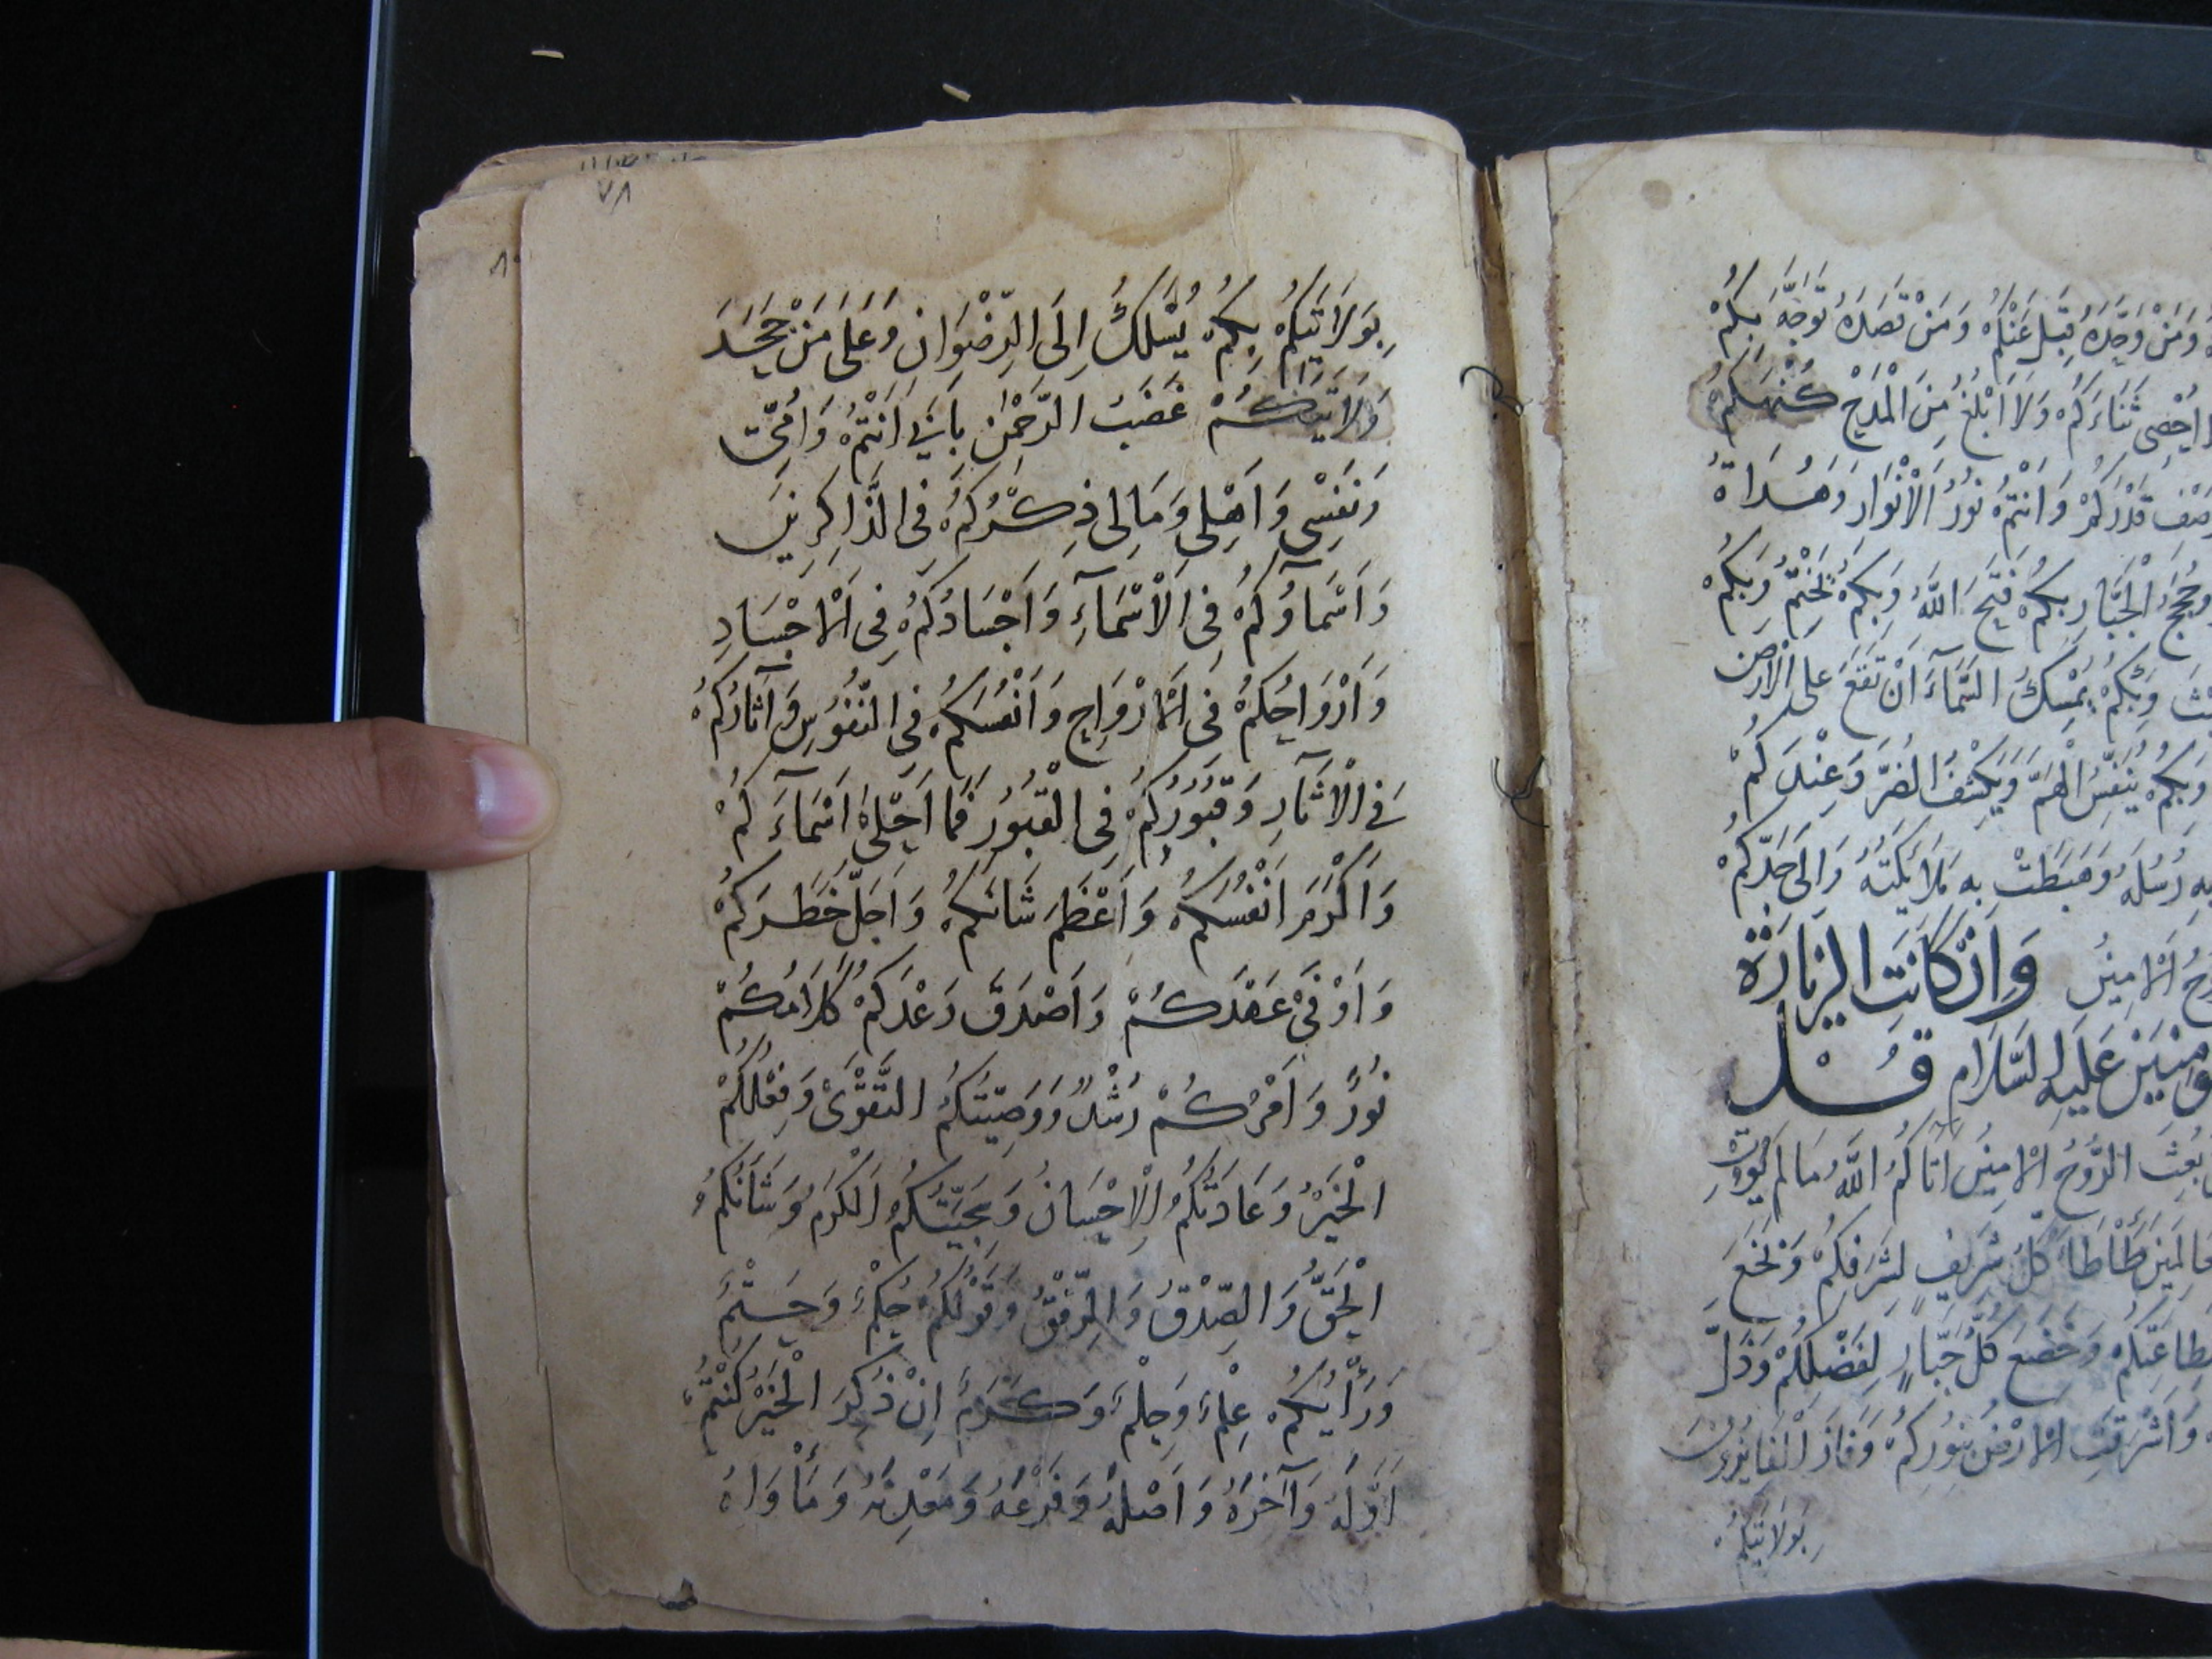 وَمَنْ وَحَّدَهُ قَبِلَ عَنْكُمْ وَمَنْ قَصَدَهُ تَوَجَّهَ بِكُمْ
اُحْصِى ثَنَاءَكُمْ وَلَا اَبْلُغُ مِنَ الْمَدْحِ كُنْهَكُمْ
قَدْرَكُمْ وَاَنْتُمْ نُورُ الْاَنْوَارِ وَهُدَاةُ
وَحُجَجُ الْجَبَّارِ بِكُمْ فَتَحَ اللَّهُ وَبِكُمْ يَخْتِمُ وَبِكُمْ
وَبِكُمْ يُمْسِكُ السَّمَآءَ اَنْ تَقَعَ عَلَى الْاَرْضِ
وَبِكُمْ يُنَفِّسُ الْهَمَّ وَيَكْشِفُ الضُّرَّ وَعِنْدَكُمْ
بِهِ رُسُلُهُ وَهَبَطَتْ بِهِ مَلَائِكَتُهُ وَاِلَى جَدِّكُمْ
الْاَمِينُ وَاِنْ كَانَتِ الزِّيَارَةُ
عَلَيْهِ السَّلَامِ قُلْ
بُعِثَ الرُّوحُ الْاَمِينُ اٰتَاكُمُ اللَّهُ مَا لَمْ يُؤْتِ
طَأْطَأَ كُلُّ شَرِيفٍ لِشَرَفِكُمْ وَنَخَعَ
وَخَضَعَ كُلُّ جَبَّارٍ لِفَضْلِكُمْ وَذَلَّ
وَاَشْرَقَتِ الْاَرْضُ بِنُورِكُمْ وَفَازَ الْفَايِزُونَ
بِوَلَايَتِكُمْ
٧٨
بِوَلَايَتِكُمْ بِكُمْ يُسْلَكُ اِلَى الرِّضْوَانِ وَعَلَى مَنْ جَحَدَ
وَلَايَتَكُمْ غَضَبُ الرَّحْمٰنِ بِاَبِي اَنْتُمْ وَاُمِّى
وَنَفْسِى وَاَهْلِى وَمَالِى ذِكْرُكُمْ فِى الذَّاكِرِينَ
وَاَسْمَآؤُكُمْ فِى الْاَسْمَآءِ وَاَجْسَادُكُمْ فِى الْاَجْسَادِ
وَاَرْوَاحُكُمْ فِى الْاَرْوَاحِ وَاَنْفُسُكُمْ فِى النُّفُوسِ وَآثَارُكُمْ
فِى الْاٰثَارِ وَقُبُورُكُمْ فِى الْقُبُورِ فَمَا اَحْلٰى اَسْمَآءَكُمْ
وَاَكْرَمَ اَنْفُسَكُمْ وَاَعْظَمَ شَانَكُمْ وَاَجَلَّ خَطَرَكُمْ
وَاَوْفَى عَهْدَكُمْ وَاَصْدَقَ وَعْدَكُمْ كَلَامُكُمْ
نُورٌ وَاَمْرُكُمْ رُشْدٌ وَوَصِيَّتُكُمُ التَّقْوَى وَفِعْلُكُمْ
الْخَيْرُ وَعَادَتُكُمُ الْاِحْسَانُ وَسَجِيَّتُكُمُ الْكَرَمُ وَشَأْنُكُمُ
الْحَقُّ وَالصِّدْقُ وَالرِّفْقُ وَقَوْلُكُمْ حُكْمٌ وَحَتْمٌ
وَرَأْيُكُمْ عِلْمٌ وَحِلْمٌ وَكَرَمٌ اِنْ ذُكِرَ الْخَيْرُ كُنْتُمْ
اَوَّلَهُ وَآخِرَهُ وَاَصْلَهُ وَفَرْعَهُ وَمَعْدِنَهُ وَمَأْوَاهُ